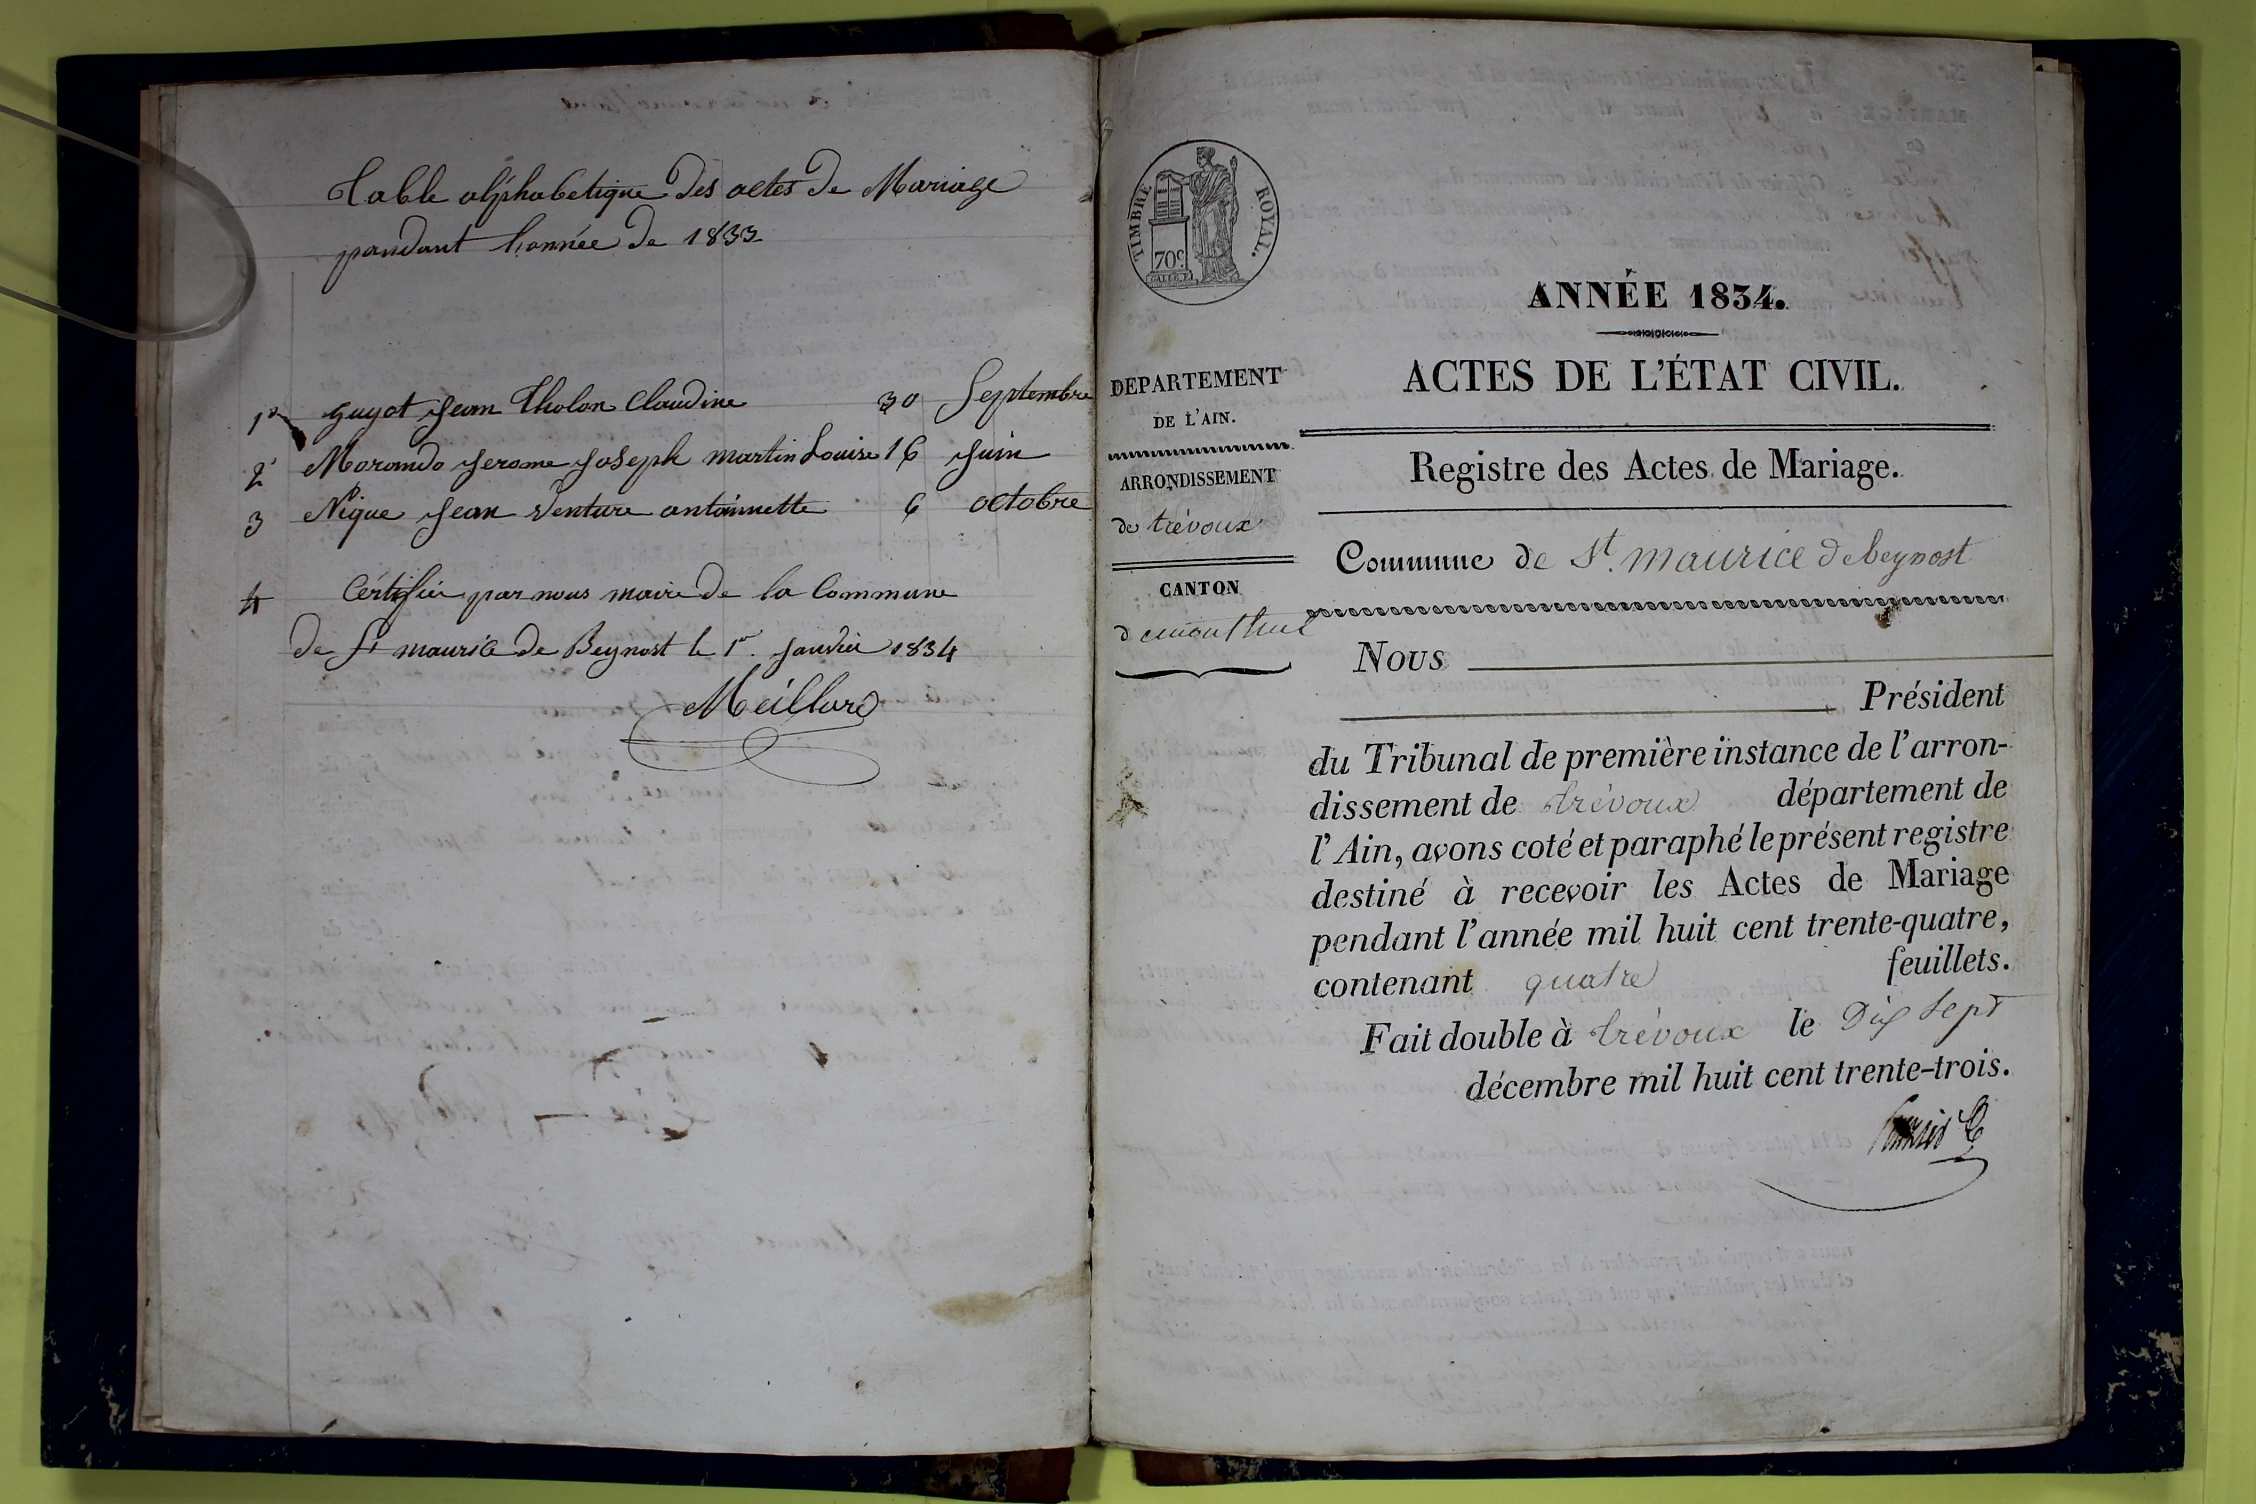 Table alphabetique des actes de Mariage
pandant l'année de 1833
1º Guyot Jean Tholon Claudine 30 Septembre
2º Morando Jerome Joseph martin Louise 16 Juin
3 Nique Jean Venture antoinnette 6 octobre
4 Certifié par nous maire de la Commune
de St maurice de Beynost le 1er Janvier 1834
Meillard
TIMBRE ROYAL.
70c
ANNÉE 1834.
ACTES DE L'ÉTAT CIVIL.
DEPARTEMENT
DE L'AIN.
Registre des Actes de Mariage.
ARRONDISSEMENT
de trévoux
Commune de St. maurice de beynost
CANTON
de montluel
Nous
Président
du Tribunal de première instance de l'arron-
dissement de trévoux département de
l'Ain, avons coté et paraphé le présent registre
destiné à recevoir les Actes de Mariage
pendant l'année mil huit cent trente-quatre,
contenant quatre feuillets.
Fait double à trévoux le Dix Sept
décembre mil huit cent trente-trois.